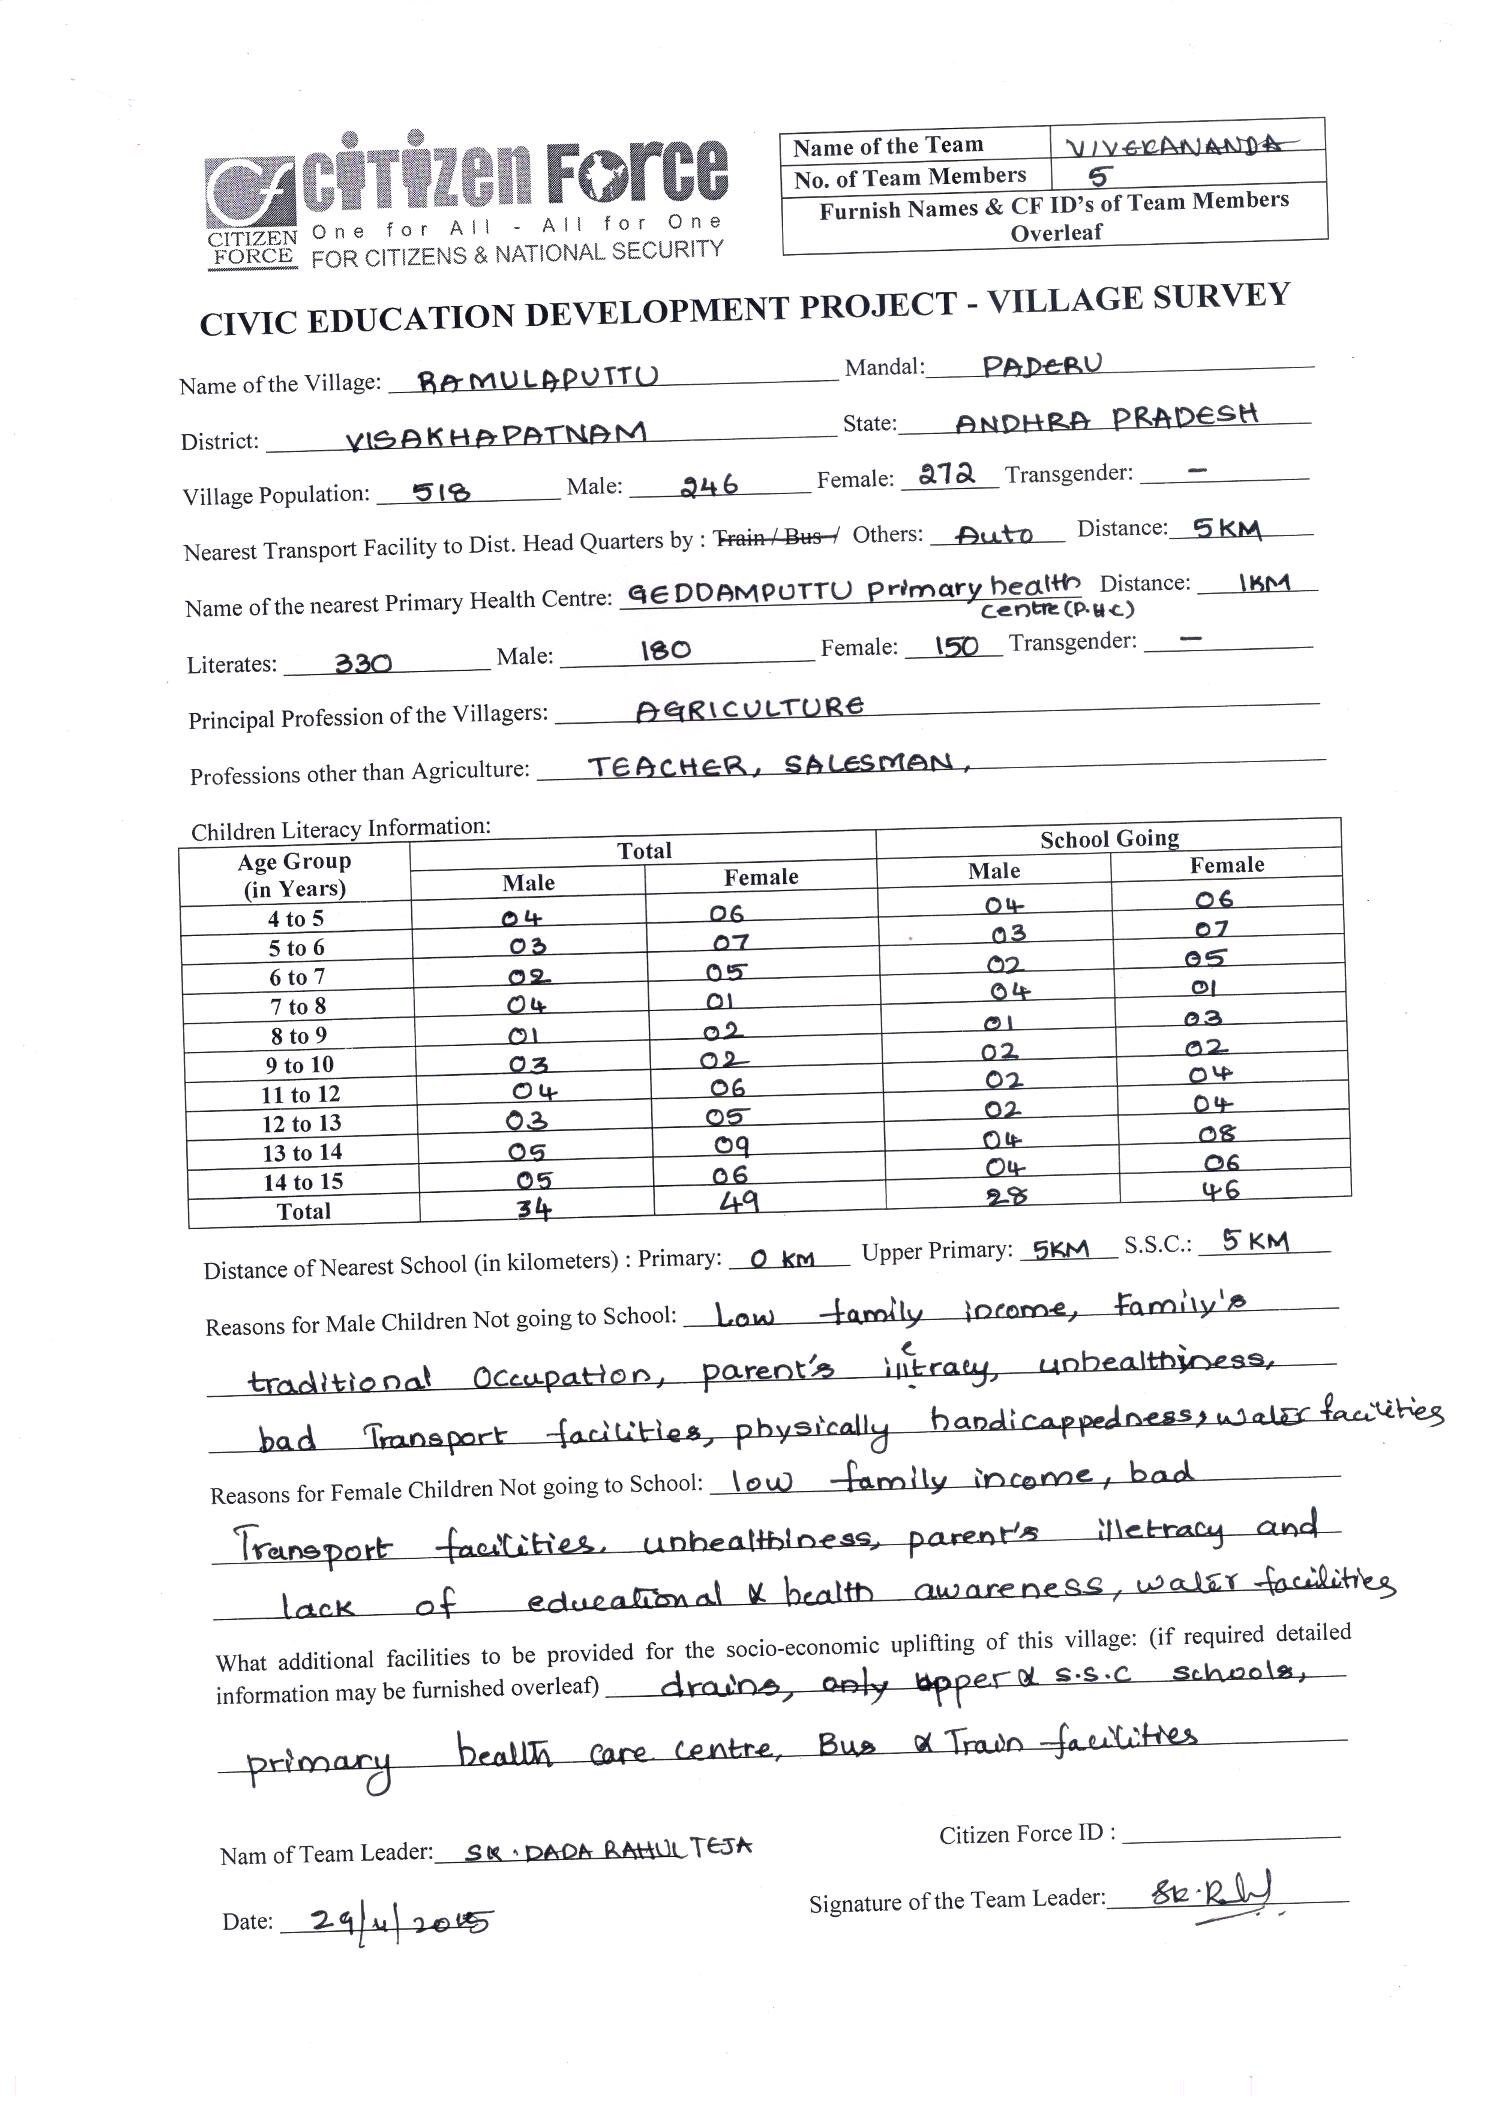 Cf CITIZEN FORCE
CITIZEN FORCE
One for All - All for One
FOR CITIZENS & NATIONAL SECURITY
Name of the Team VIVEKANANDA
No. of Team Members 5
Furnish Names & CF ID's of Team Members
Overleaf
CIVIC EDUCATION DEVELOPMENT PROJECT - VILLAGE SURVEY
Name of the Village: RAMULAPUTTU Mandal: PADERU
District: VISAKHAPATNAM State: ANDHRA PRADESH
Village Population: 518 Male: 246 Female: 272 Transgender: -
Nearest Transport Facility to Dist. Head Quarters by : Train / Bus / Others: Auto Distance: 5KM
Name of the nearest Primary Health Centre: GEDDAMPUTTU primary health Distance: 1KM
centre (P.H.C)
Literates: 330 Male: 180 Female: 150 Transgender: -
Principal Profession of the Villagers: AGRICULTURE
Professions other than Agriculture: TEACHER, SALESMAN,
Children Literacy Information:
Age Group (in Years) Total School Going
Male Female Male Female
4 to 5 04 06 04 06
5 to 6 03 07 03 07
6 to 7 02 05 02 05
7 to 8 04 01 04 01
8 to 9 01 02 01 03
9 to 10 03 02 02 02
11 to 12 04 06 02 04
12 to 13 03 05 02 04
13 to 14 05 09 04 08
14 to 15 05 06 04 06
Total 34 49 28 46
Distance of Nearest School (in kilometers) : Primary: 0 KM Upper Primary: 5KM S.S.C.: 5 KM
Reasons for Male Children Not going to School: Low family income, family's
traditional Occupation, parent's unhealthyness,
bad Transport facilities, physically handicappedness, water facilities
Reasons for Female Children Not going to School: low family income, bad
Transport facilities, unhealthiness, parent's illetracy and
lack of educational & health awareness, water facilities
What additional facilities to be provided for the socio-economic uplifting of this village: (if required detailed
information may be furnished overleaf) drains, only upper & S.S.C schools,
primary health care centre, Bus & Train facilities
Nam of Team Leader: SK. DADA RAHUL TEJA Citizen Force ID :
Date: 29/4/2015 Signature of the Team Leader: